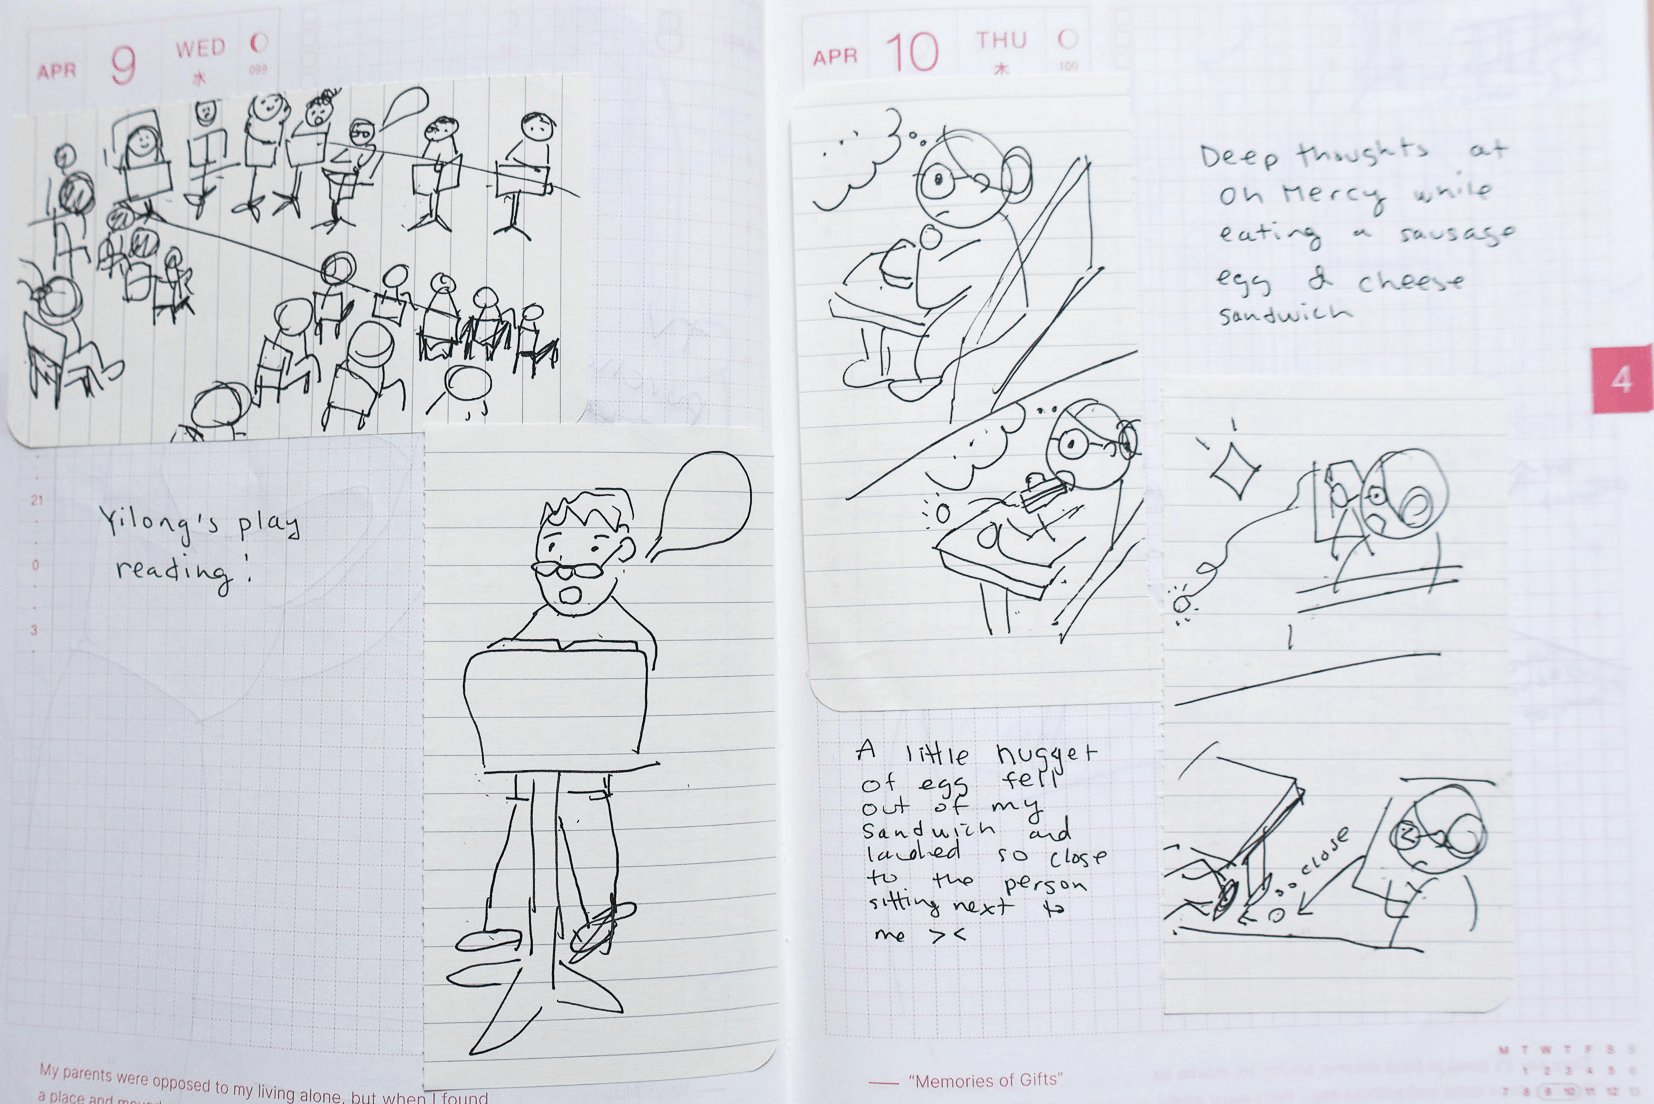 APR 9 WED
水 099
21
Yilong's play
reading!
0
3
My parents were opposed to my living alone, but when I found
a place and moved
APR 10 THU
木 100
Deep thoughts at
Oh Mercy while
eating a sausage
egg & cheese
sandwich
4
so close
A little nugget
of egg fell
out of my
sandwich and
landed so close
to the person
sitting next to
me ><
— "Memories of Gifts"
M T W T F S S
1 2 3 4 5 6
7 8 9 10 11 12 13